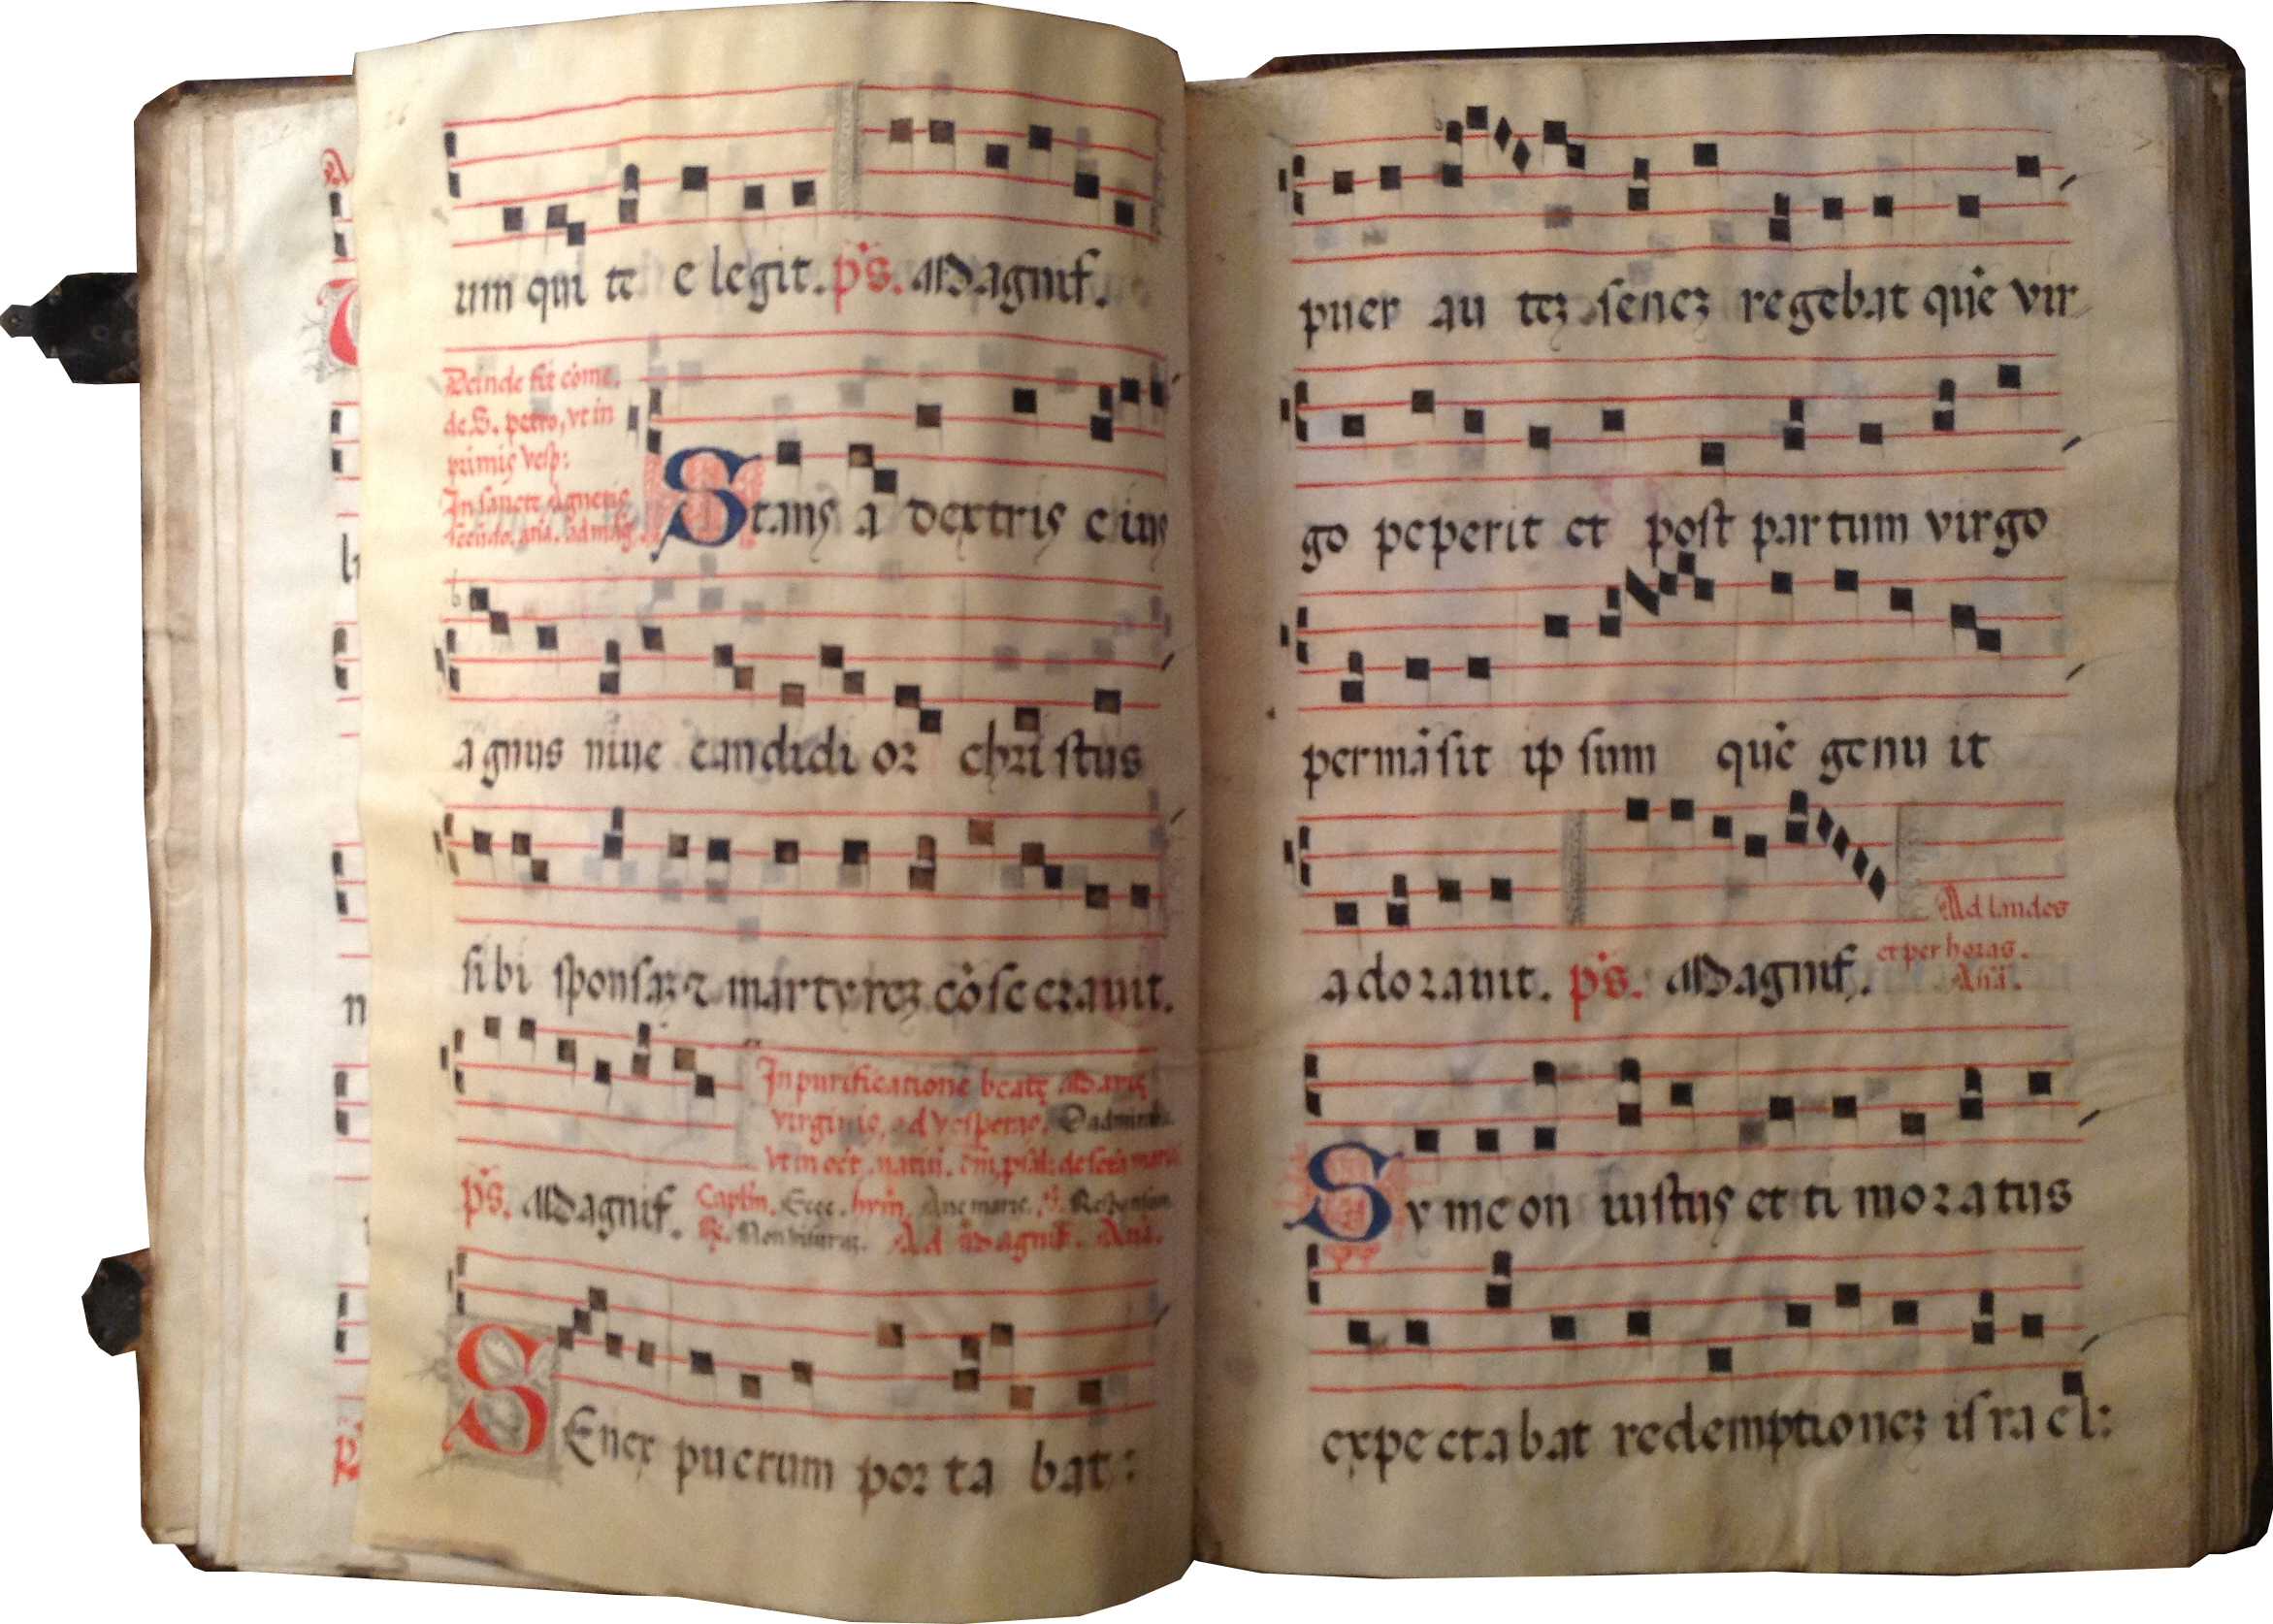 um qui te e legit. ps. Magnif.
Deinde fit come.
de S. petro, vt in
primis vesp:
In sancte agnetis
secūdo. anā. ad mag.
Stans a dextris eius
agnus niue candidi or chri stus
si bi sponsaz & martyrez cōse crauit.
In purificatione beatę Marię
virginis, ad vesperas.
vt in oct. natiui. dm̄, psal: de sctā maria
ps. Magnif. Capl'm. Ecce. hym. Aue maris. ℣. Responsum
℟. Non visurūz. Ad Magnif. Anā.
SEnex puerum por ta bat:
puer au tez senez regebat quē vir
go peperit et post partum virgo
permāsit ip sum quē genu it
adorauit. ps. Magnif.
Ad laudes
et per horas.
Anā.
Sy me on iustus et ti mo ra tus
expe cta bat redemptionez is ra el: